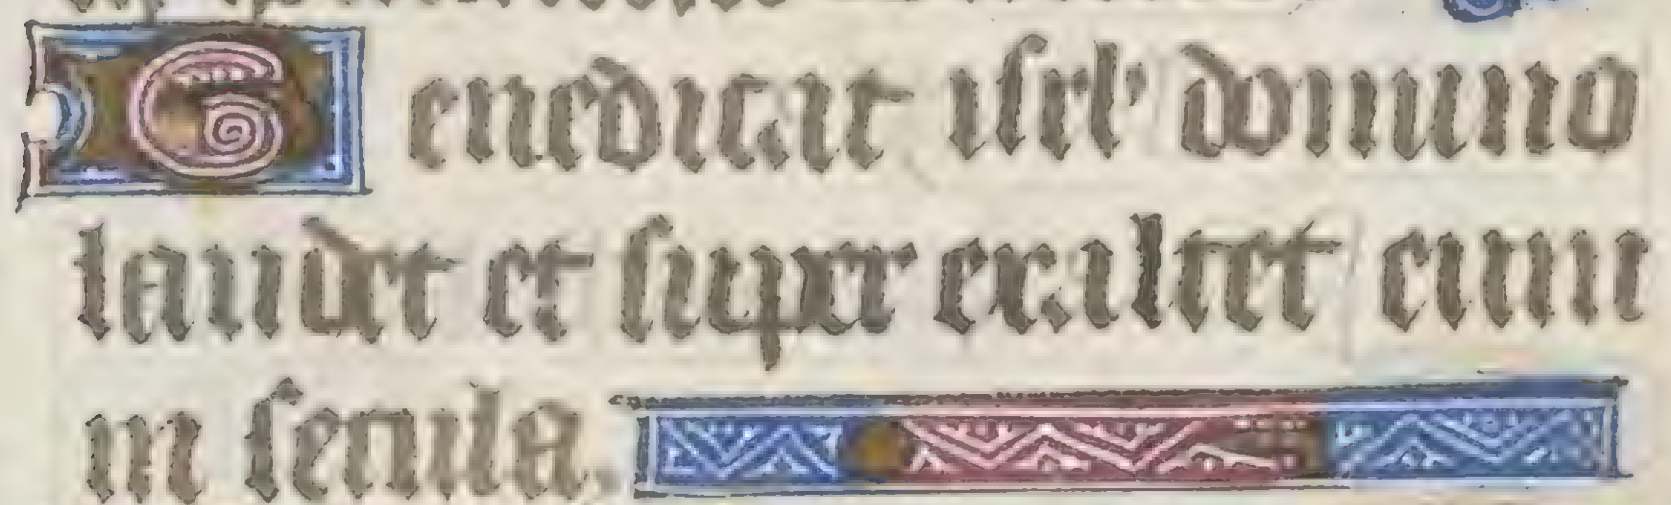 Genedicat iſrl' domino
laudet et ſuper exaltet eum
in ſecula.